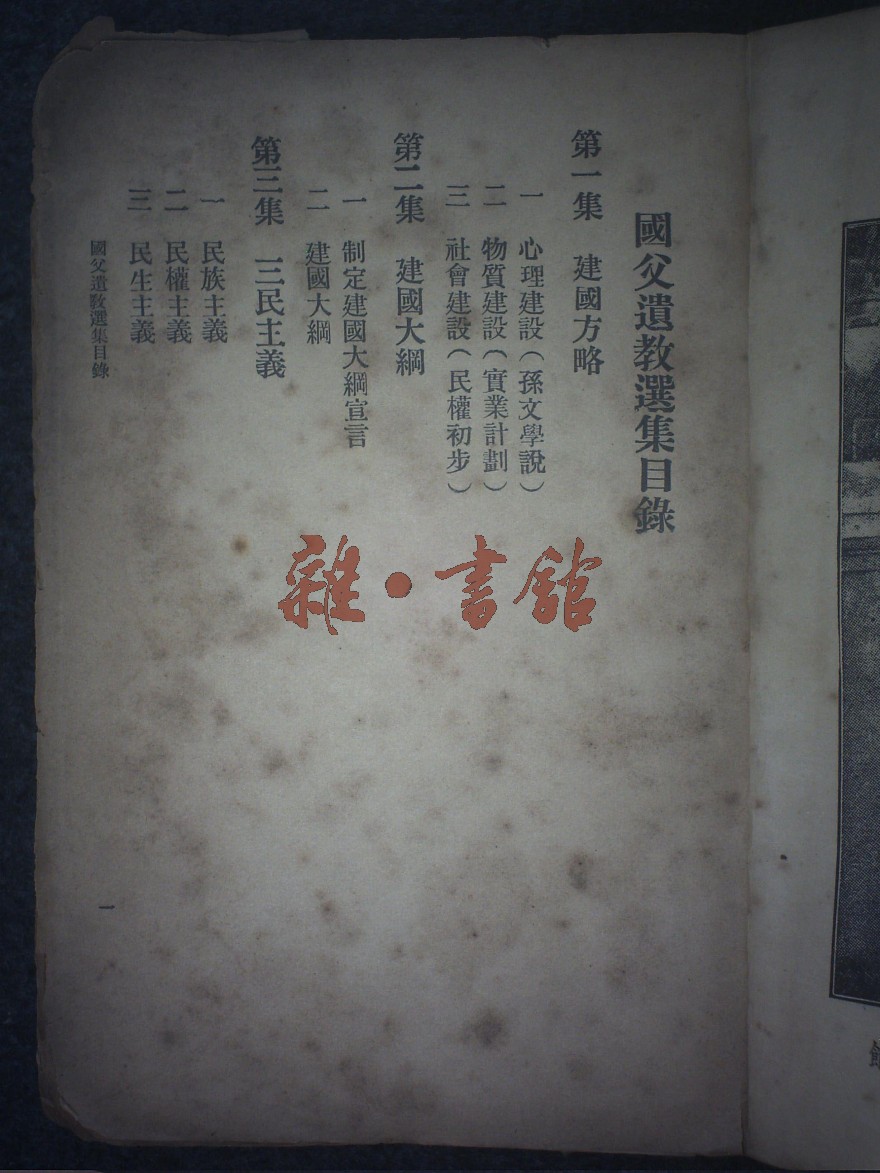 國父遺教選集目錄
第一集　建國方略
一　心理建設（孫文學說）
二　物質建設（實業計劃）
三　社會建設（民權初步）
第二集　建國大綱
一　制定建國大綱宣言
二　建國大綱
第三集　三民主義
一　民族主義
二　民權主義
三　民生主義
國父遺敎選集目錄
一
雜·書館